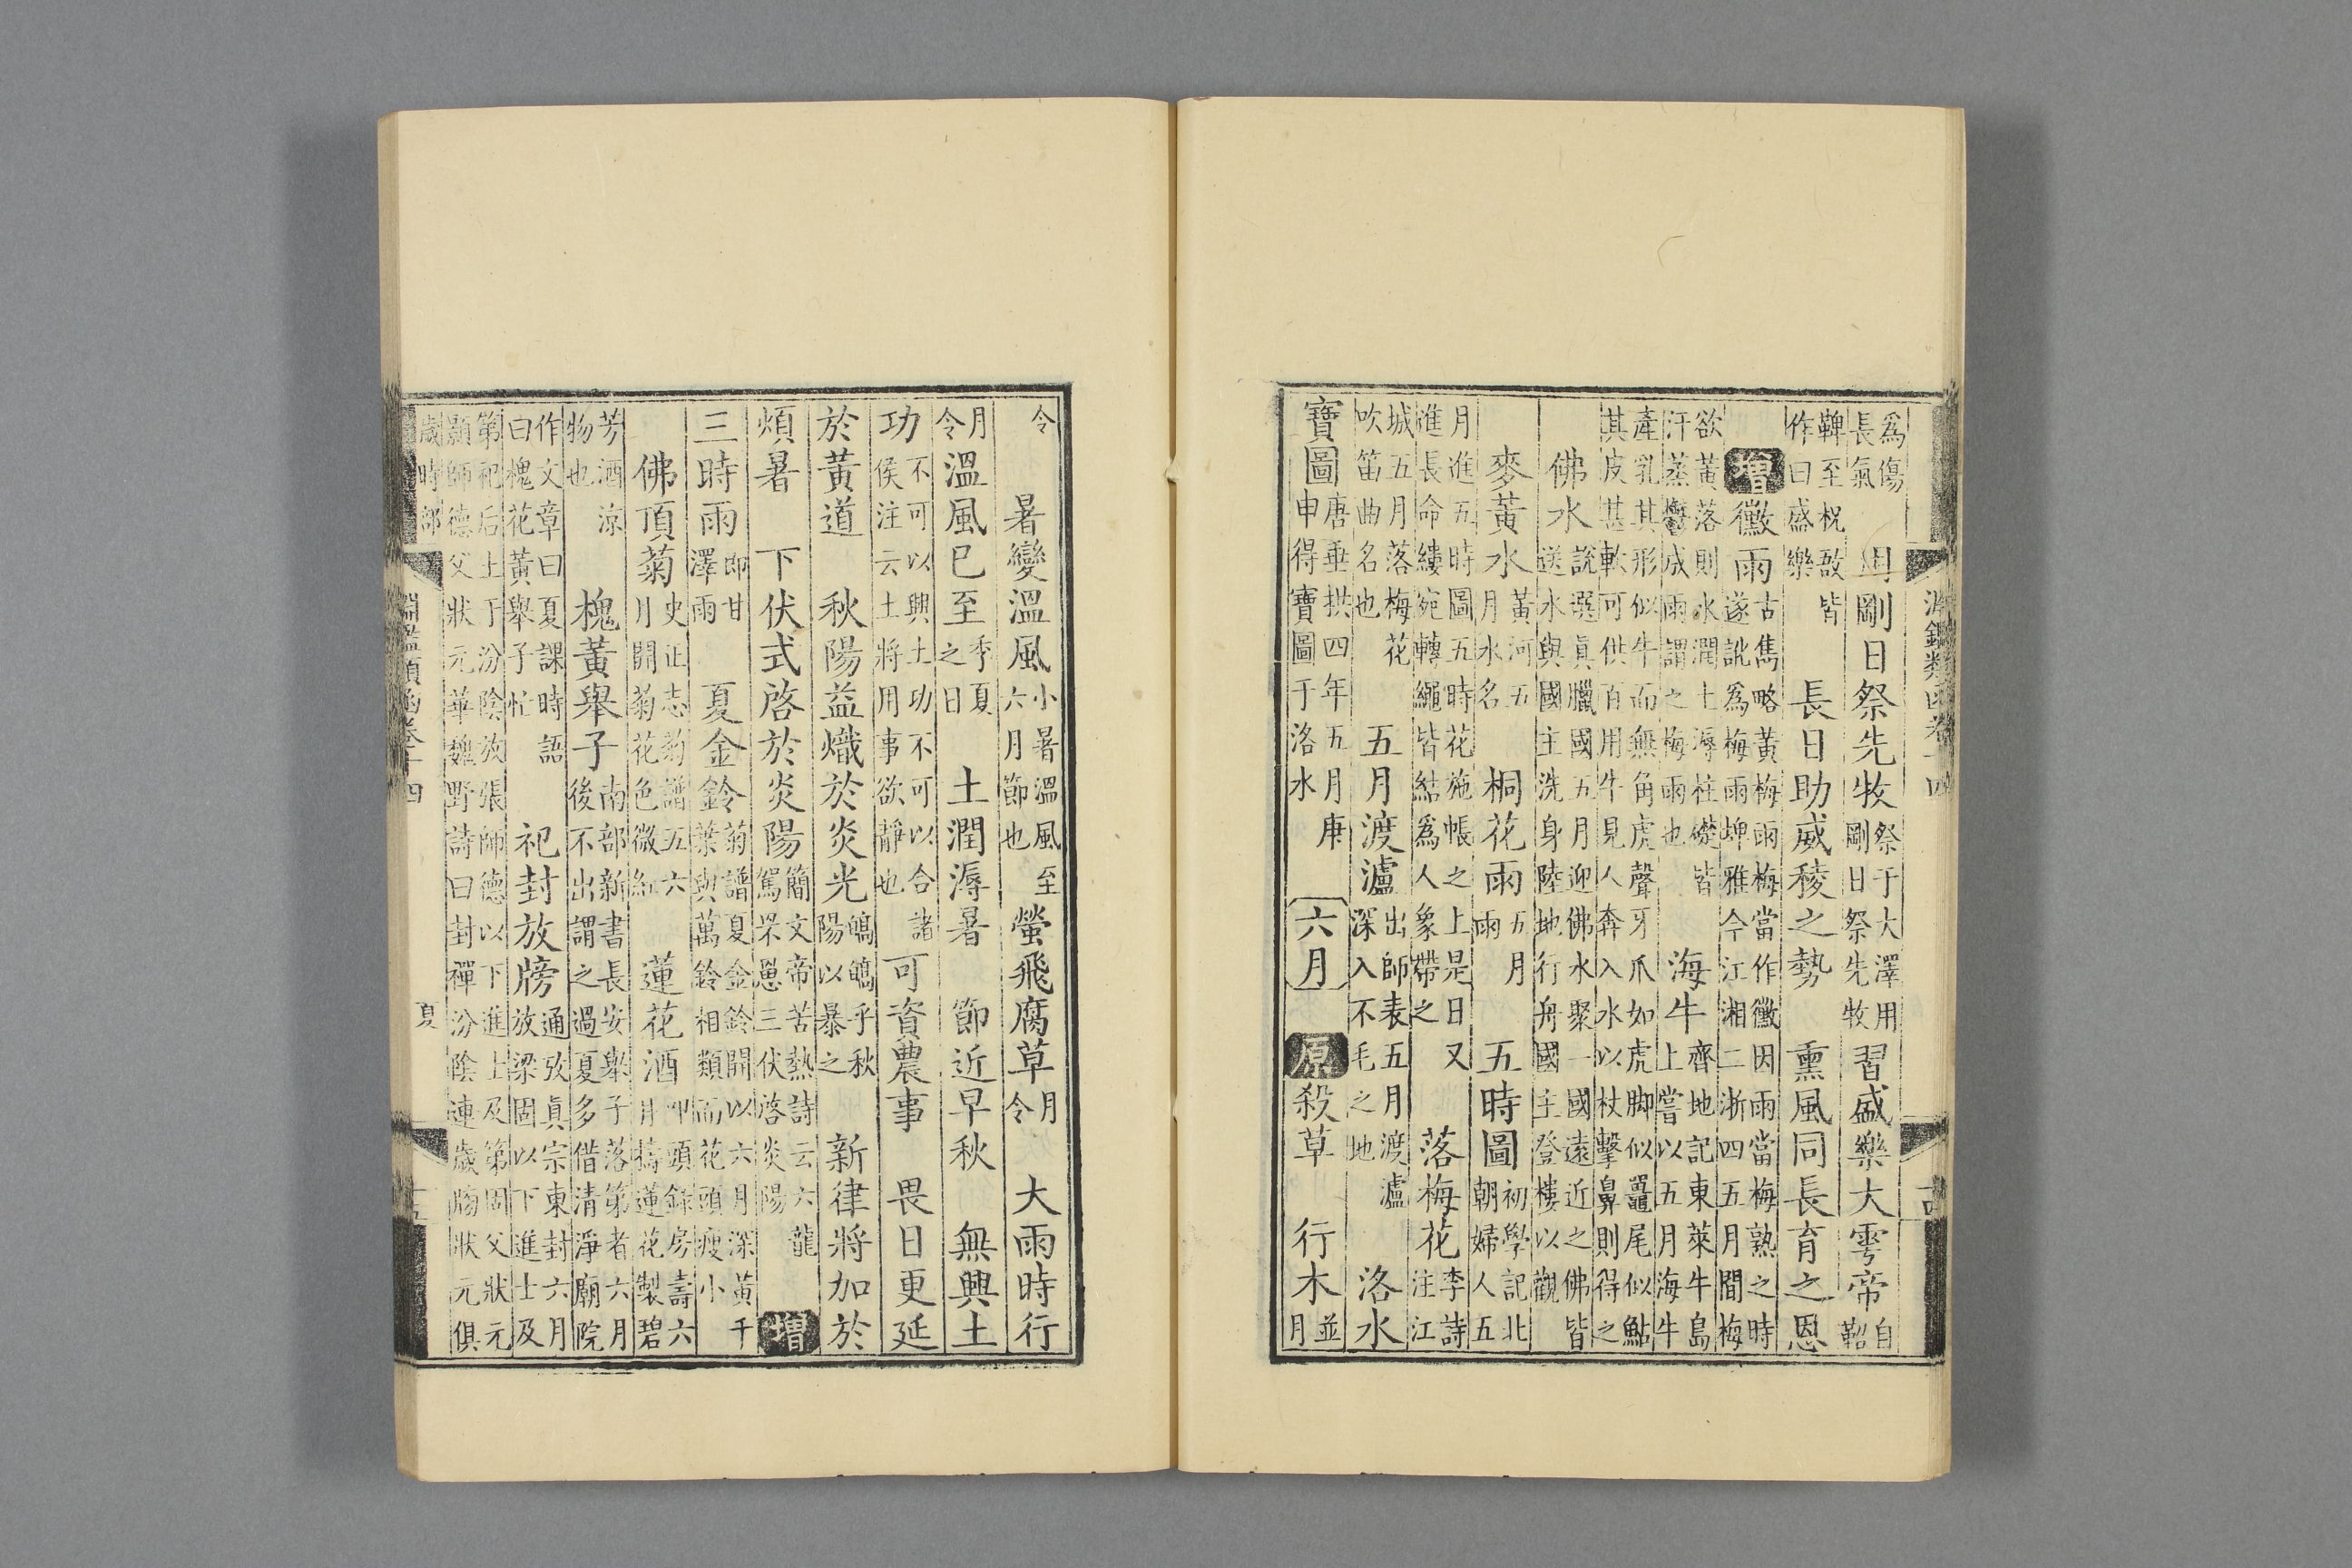 淵鑑類函卷十四 十四
爲傷長氣 用剛日祭先牧 祭于大澤用剛日祭先牧 習盛樂大雩帝 自鞀
鞞至柷敔皆作曰盛樂 長日助威稜之勢 熏風同長育之恩
增 黴雨 古雋略黃梅雨梅當作黴因雨當梅熟之時遂訛爲梅雨埤雅今江湘二浙四五月間梅
欲黃落則水潤土溽柱礎皆汗蒸鬱成雨謂之梅雨也 海牛 齊地記東萊牛島上嘗以五月海牛
產乳其形似牛而無角虎聲牙爪如虎脚似鼉尾似鮎其皮甚軟可供百用牛見人奔入水以杖擊鼻則得之
佛水 說選真臘國五月迎佛水聚一國遠近之佛皆送水與國主洗身陸地行舟國主登樓以觀
麥黃水 黃河五月水名 桐花雨 五月雨 五時圖 初學記北朝婦人五
月進五時圖五時花施帳之上是日又進長命縷宛轉繩皆結爲人象帶之 落梅花 李詩注江
城五月落梅花吹笛曲名也 五月渡瀘 出師表五月渡瀘深入不毛之地 洛水
寶圖 唐垂拱四年五月庚申得寶圖于洛水 六月 原 殺草 行木 並月
令 暑變溫風 小暑溫風至六月節也 螢飛腐草 月令 大雨時行
月令 溫風已至 季夏之日 土潤溽暑 節近早秋 無興土
功 不可以興土功不可以合諸侯注云土將用事欲靜也 可資農事 畏日更延
於黃道 秋陽益熾於炎光 乎秋陽以暴之 新律將加於
煩暑 下伏式啓於炎陽 簡文帝苦熱詩云六龍三伏啓炎陽 增
三時雨 即甘澤雨 夏金鈴 菊譜夏金鈴開以六月深黃千葉與萬鈴相類而花頭瘦小
佛頂菊 史正志菊譜五六月開菊花色微紅 蓮花酒 叩頭錄房壽六月擣蓮花製碧
芳酒涼物也 槐黃舉子 南部新書長安舉子落第者六月後不出謂之過夏多借清淨廟院
作文章曰夏課時語曰槐花黃舉子忙 祀封放牓 通攷真宗東封六月放梁固以下進士及
第祀后土于汾陰放張師德以下進士及第固父狀元顥師德父狀元華魏野詩曰封禪汾陰連歲牓狀元俱
歲時部 淵鑑類函卷十四 夏 十五